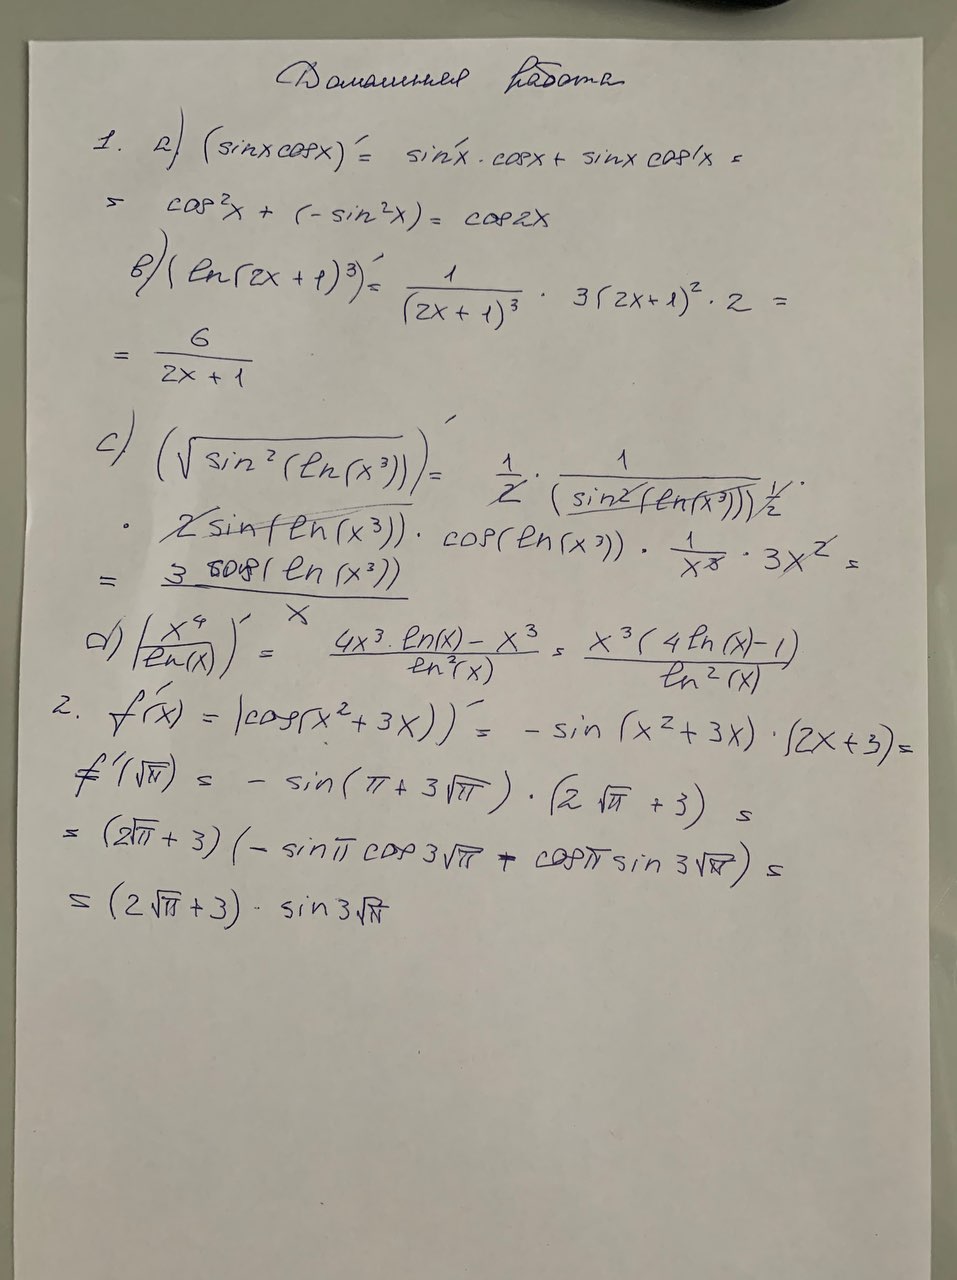 Домашняя работа
1. a) (sinxcosx)′ = sin′x · cosx + sinx cos′x =
= cos²x + (-sin²x) = cos2x
b) (ln(2x+1)³)′ = 1/(2x+1)³ · 3(2x+1)² · 2 =
= 6/(2x+1)
c) (√(sin²(ln(x³))))′ = 1/2 · 1/(sin²(ln(x³)))^(1/2) ·
· 2sin(ln(x³)) · cos(ln(x³)) · 1/x³ · 3x² =
= 3 cos(ln(x³))/x
d) (x⁴/ln(x))′ = (4x³·ln(x) - x³)/ln²(x) = x³(4ln(x)-1)/ln²(x)
2. f′(x) = (cos(x²+3x))′ = -sin(x²+3x)·(2x+3) =
f′(√π) = -sin(π+3√π)·(2√π+3) =
= (2√π+3)(-sinπ cos3√π - cosπ sin3√π) =
= (2√π+3)· sin3√π